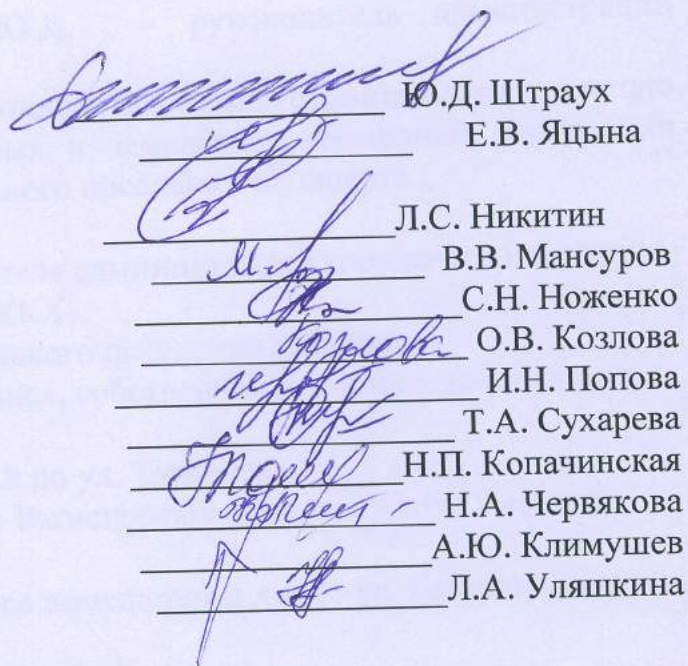 Ю.Д. Штраух
Е.В. Яцына
Л.С. Никитин
В.В. Мансуров
С.Н. Ноженко
Козлова О.В. Козлова
И.Н. Попова
Т.А. Сухарева
Н.П. Копачинская
Н.А. Червякова
А.Ю. Климушев
Л.А. Уляшкина